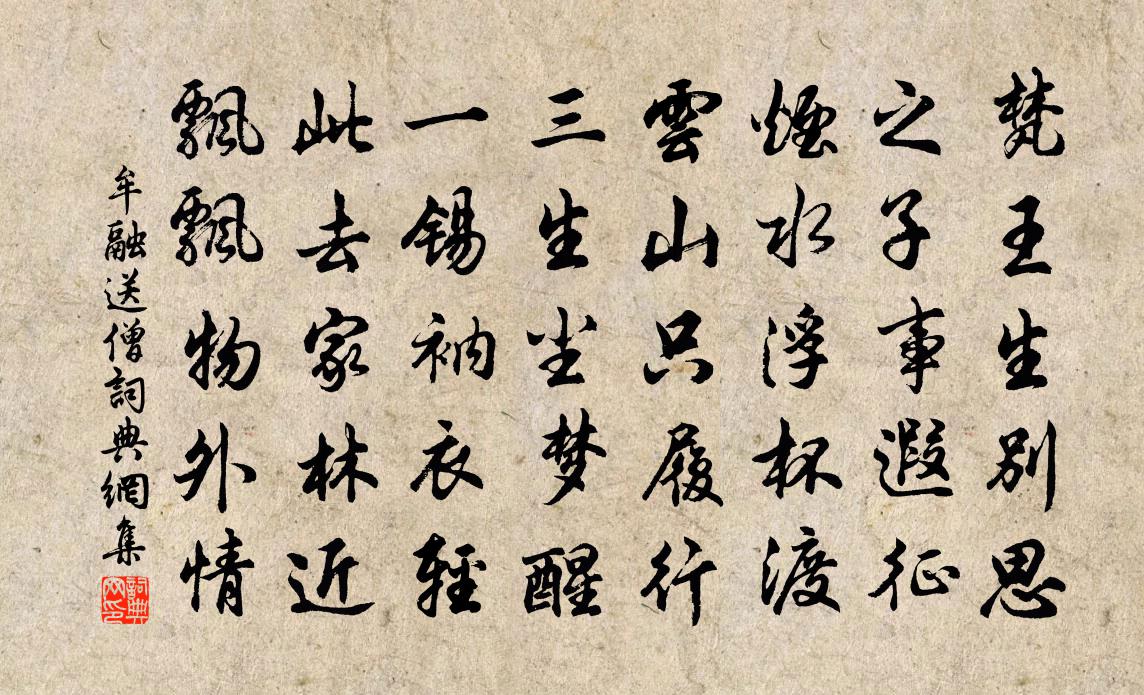 梵王生別思
之子事遐征
煙水浮杯渡
雲山只履行
三生尘梦醒
一锡衲衣輕
此去家林近
飄飄物外情
牟融送僧詞典網集
詞典网印